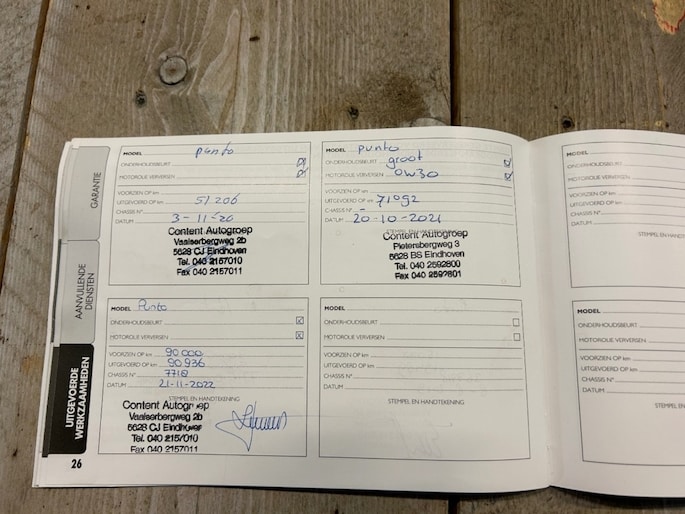 GARANTIE
AANVULLENDE DIENSTEN
UITGEVOERDE WERKZAAMHEDEN
26
MODEL punto
ONDERHOUDSBEURT
MOTOROLIE VERVERSEN
VOORZIEN OP km
UITGEVOERD OP km 51206
CHASSIS N°
DATUM 3-11-20
Content Autogroep
Vaalserbergweg 2b
5628 CJ Eindhoven
Tel. 040 2157010
Fax 040 2157011
MODEL punto
ONDERHOUDSBEURT groot
MOTOROLIE VERVERSEN 0W30
VOORZIEN OP km
UITGEVOERD OP km 71092
CHASSIS N°
DATUM 20-10-2021
Content Autogroep
Pietersbergweg 3
5628 BS Eindhoven
Tel. 040 2592800
Fax 040 2592801
MODEL Punto
ONDERHOUDSBEURT
MOTOROLIE VERVERSEN
VOORZIEN OP km 90000
UITGEVOERD OP km 90936
CHASSIS N° 7718
DATUM 21-11-2022
STEMPEL EN HANDTEKENING
Content Autogroep
Vaalserbergweg 2b
5628 CJ Eindhoven
Tel. 040 2157010
Fax 040 2157011
MODEL
ONDERHOUDSBEURT
MOTOROLIE VERVERSEN
VOORZIEN OP km
UITGEVOERD OP km
CHASSIS N°
DATUM
STEMPEL EN HANDTEKENING
MODEL
ONDERHOUDSBEURT
MOTOROLIE VERVERSEN
VOORZIEN OP km
UITGEVOERD OP km
CHASSIS N°
DATUM
STEMPEL EN HANDT
MODEL
ONDERHOUDSBEURT
MOTOROLIE VERVERSEN
VOORZIEN OP km
UITGEVOERD OP km
CHASSIS N°
DATUM
STEMPEL EN